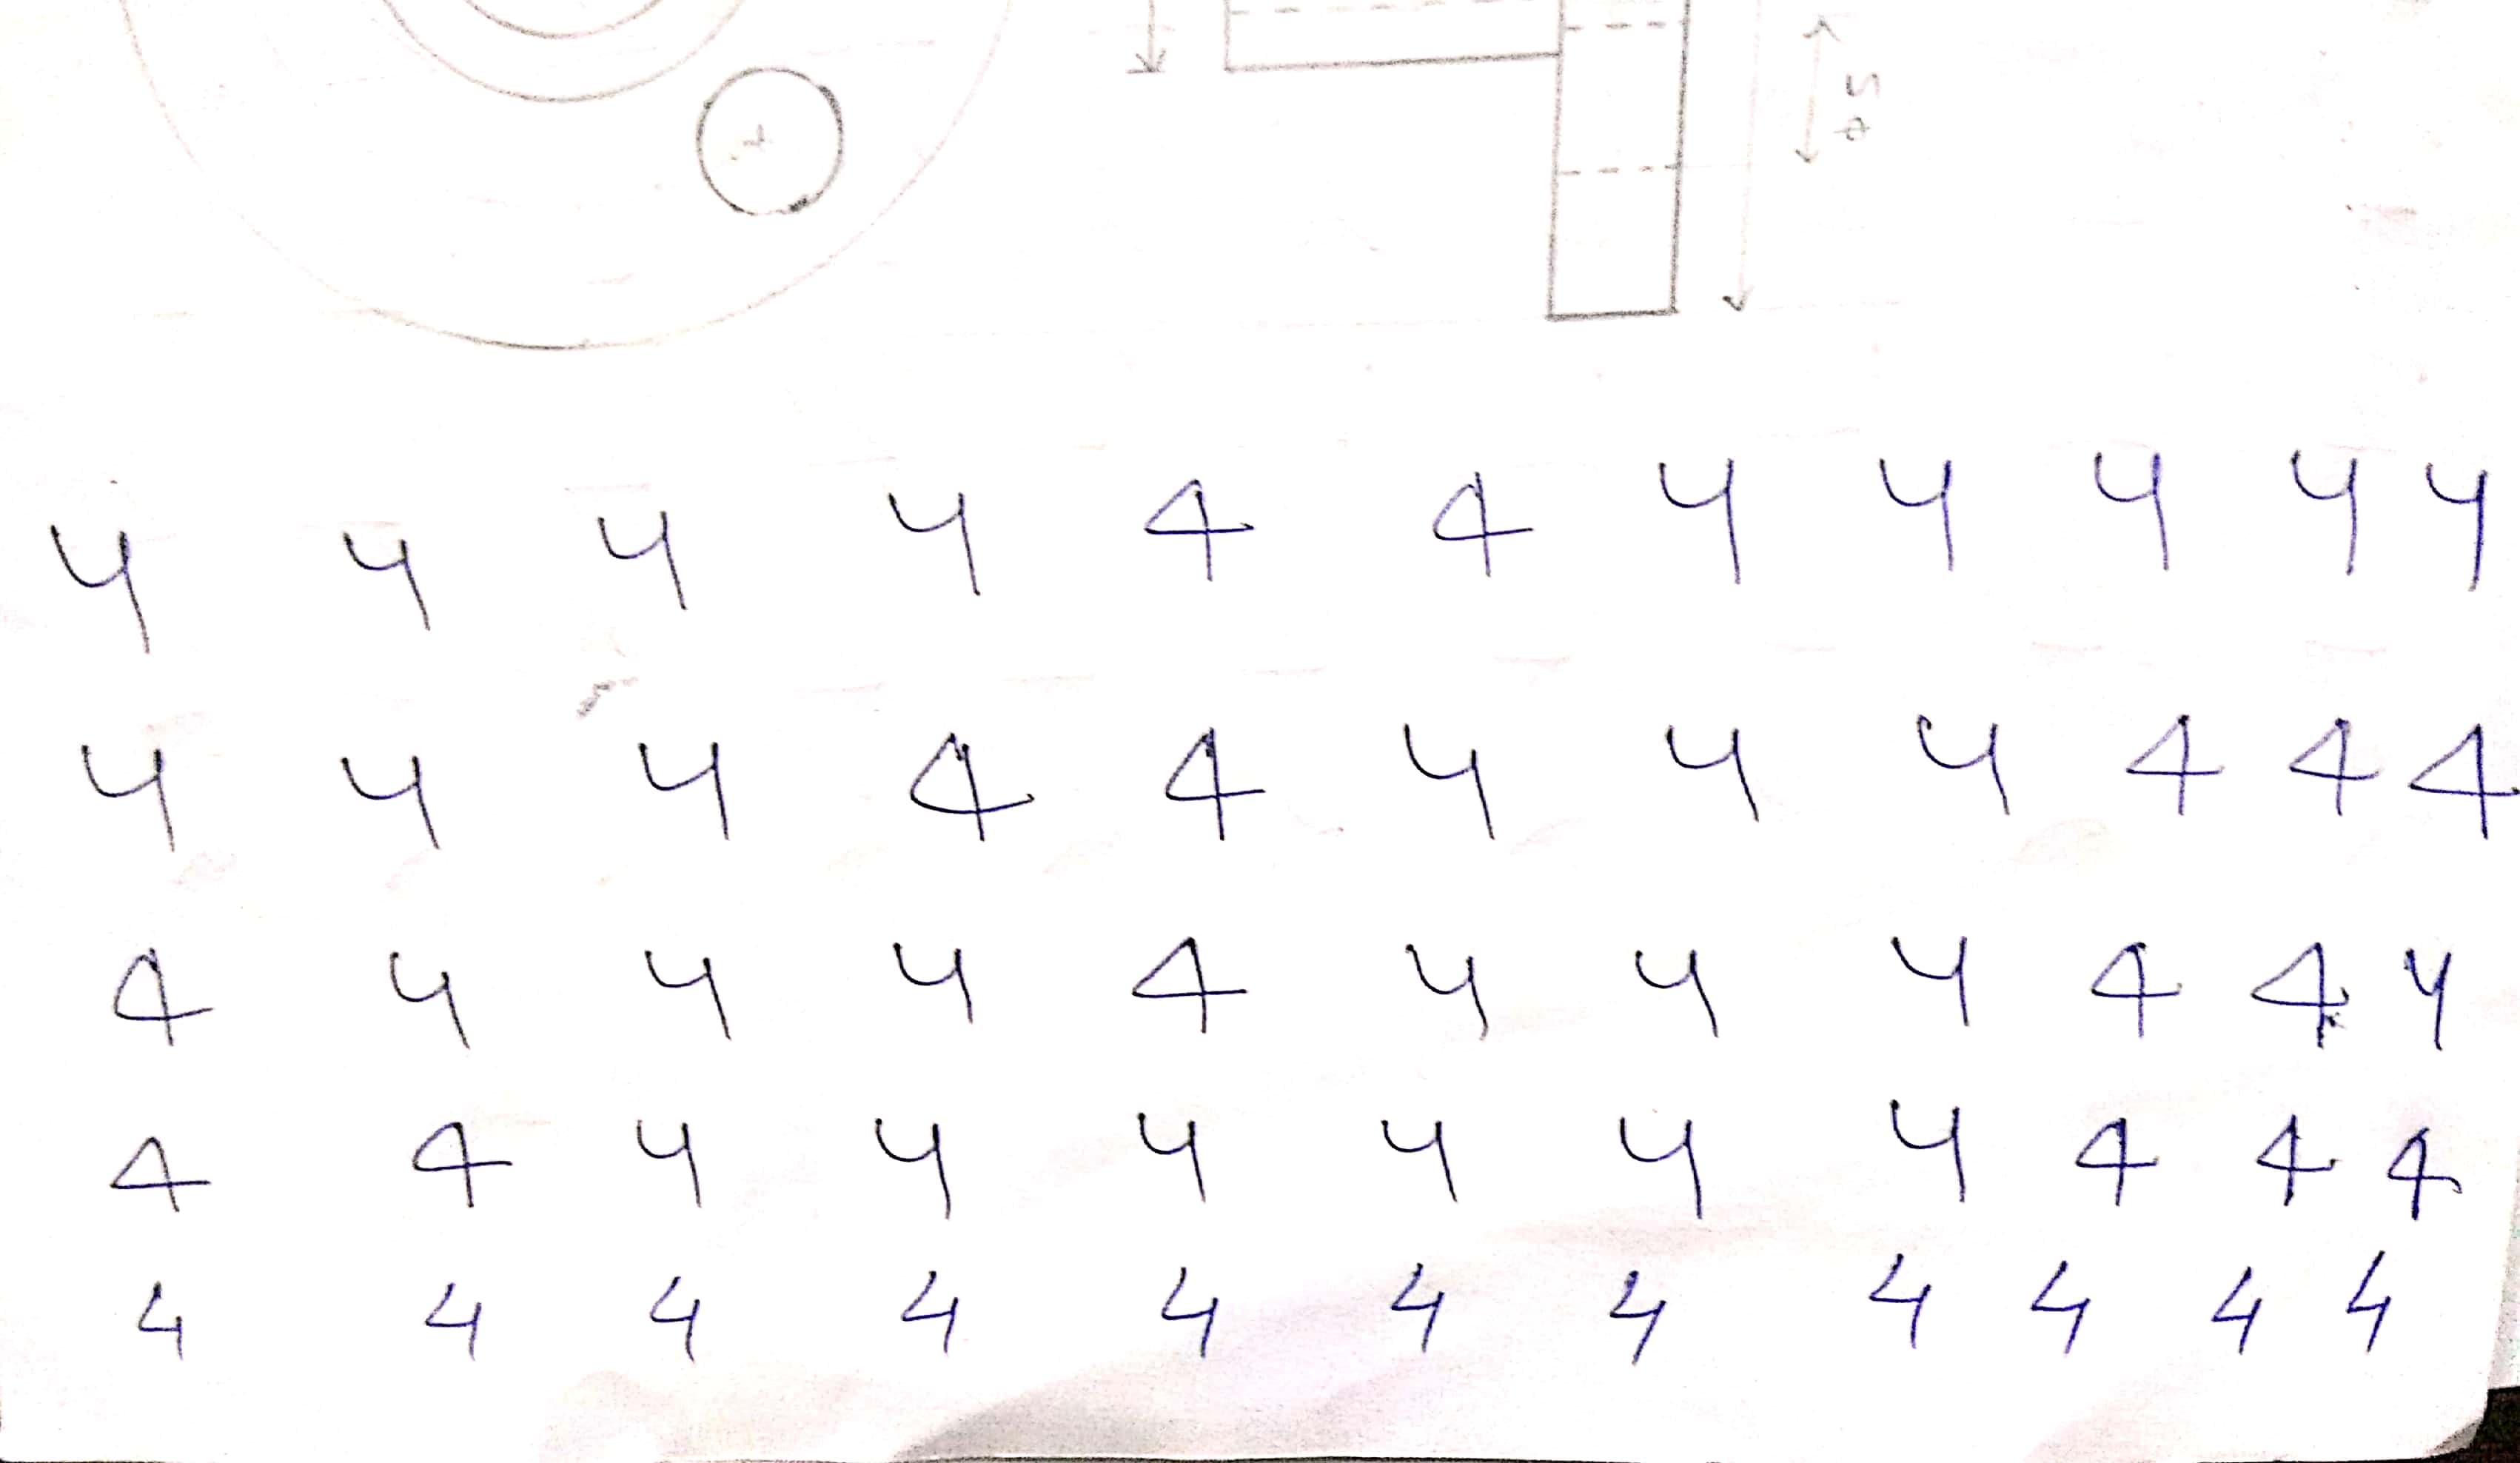 4 4 4 4 4 4 4 4 4 4 4
4 4 4 4 4 4 4 4 4 4 4
4 4 4 4 4 4 4 4 4 4 4
4 4 4 4 4 4 4 4 4 4 4
4 4 4 4 4 4 4 4 4 4 4